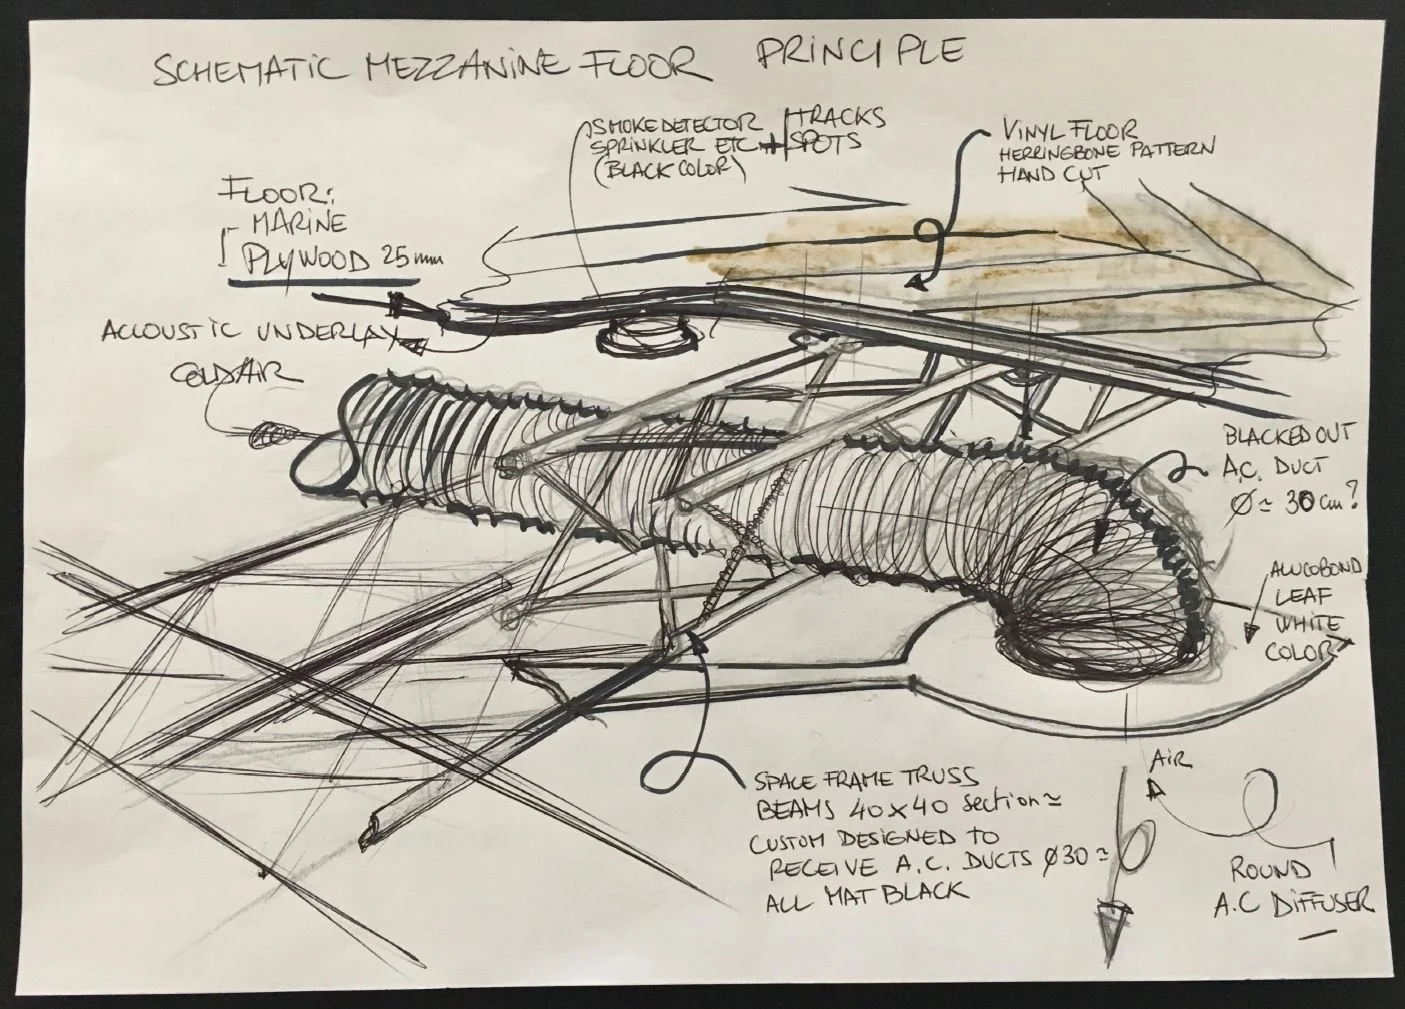 SCHEMATIC MEZZANINE FLOOR PRINCIPLE
SMOKE DETECTOR
SPRINKLER ETC +
(BLACK COLOR)
TRACKS
SPOTS
VINYL FLOOR
HERRINGBONE PATTERN
HAND CUT
FLOOR:
MARINE
PLYWOOD 25mm
ACCOUSTIC UNDERLAY
COLD AIR
BLACKED OUT
A.C. DUCT
Ø ≃ 30 cm?
ALUCOBOND
LEAF
WHITE
COLOR
SPACE FRAME TRUSS
BEAMS 40x40 section ≃
CUSTOM DESIGNED TO
RECEIVE A.C. DUCTS Ø30 ≃
ALL MAT BLACK
AIR
ROUND
A.C DIFFUSER